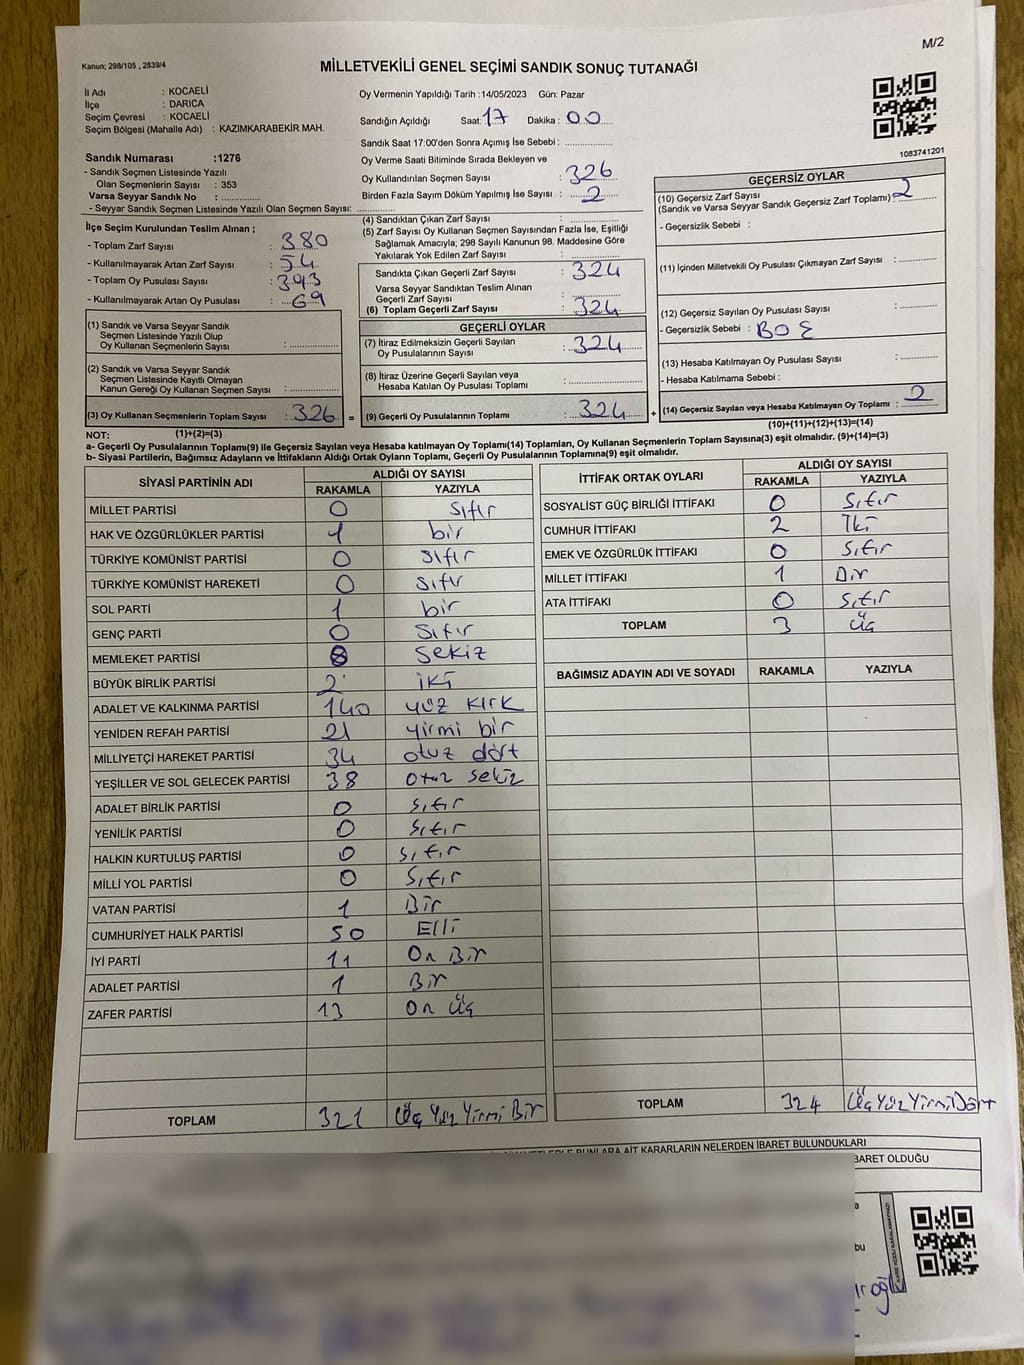 M/2
Kanun; 298/105 , 2839/4
MİLLETVEKİLİ GENEL SEÇİMİ SANDIK SONUÇ TUTANAĞI
İl Adı : KOCAELİ
İlçe : DARICA
Seçim Çevresi : KOCAELİ
Seçim Bölgesi (Mahalle Adı) : KAZIMKARABEKİR MAH.
Sandık Numarası :1276
- Sandık Seçmen Listesinde Yazılı
Olan Seçmenlerin Sayısı : 353
Varsa Seyyar Sandık No :
- Seyyar Sandık Seçmen Listesinde Yazılı Olan Seçmen Sayısı:
Oy Vermenin Yapıldığı Tarih :14/05/2023 Gün: Pazar
Sandığın Açıldığı Saat: 17 Dakika : 00
Sandık Saat 17:00'den Sonra Açımış İse Sebebi :
Oy Verme Saati Bitiminde Sırada Bekleyen ve
Oy Kullandırılan Seçmen Sayısı : 326
Birden Fazla Sayım Döküm Yapılmış İse Sayısı : 2
1083741201
İlçe Seçim Kurulundan Teslim Alınan ;
- Toplam Zarf Sayısı : 380
- Kullanılmayarak Artan Zarf Sayısı : 54
- Toplam Oy Pusulası Sayısı : 393
- Kullanılmayarak Artan Oy Pusulası : 69
(1) Sandık ve Varsa Seyyar Sandık
Seçmen Listesinde Yazılı Olup
Oy Kullanan Seçmenlerin Sayısı :
(2) Sandık ve Varsa Seyyar Sandık
Seçmen Listesinde Kayıtlı Olmayan
Kanun Gereği Oy Kullanan Seçmen Sayısı :
(3) Oy Kullanan Seçmenlerin Toplam Sayısı : 326 =
(1)+(2)=(3)
(4) Sandıktan Çıkan Zarf Sayısı :
(5) Zarf Sayısı Oy Kullanan Seçmen Sayısından Fazla İse, Eşitliği
Sağlamak Amacıyla; 298 Sayılı Kanunun 98. Maddesine Göre
Yakılarak Yok Edilen Zarf Sayısı :
Sandıkta Çıkan Geçerli Zarf Sayısı : 324
Varsa Seyyar Sandıktan Teslim Alınan
Geçerli Zarf Sayısı :
(6) Toplam Geçerli Zarf Sayısı : 324
GEÇERLİ OYLAR
(7) İtiraz Edilmeksizin Geçerli Sayılan
Oy Pusulalarının Sayısı : 324
(8) İtiraz Üzerine Geçerli Sayılan veya
Hesaba Katılan Oy Pusulası Toplamı :
(9) Geçerli Oy Pusulalarının Toplamı : 324 +
GEÇERSİZ OYLAR
(10) Geçersiz Zarf Sayısı
(Sandık ve Varsa Seyyar Sandık Geçersiz Zarf Toplamı) 2
- Geçersizlik Sebebi :
(11) İçinden Milletvekili Oy Pusulası Çıkmayan Zarf Sayısı :
(12) Geçersiz Sayılan Oy Pusulası Sayısı :
- Geçersizlik Sebebi : BOŞ
(13) Hesaba Katılmayan Oy Pusulası Sayısı :
- Hesaba Katılmama Sebebi :
(14) Geçersiz Sayılan veya Hesaba Katılmayan Oy Toplamı : 2
(10)+(11)+(12)+(13)=(14)
NOT:
a- Geçerli Oy Pusulalarının Toplamı(9) ile Geçersiz Sayılan veya Hesaba katılmayan Oy Toplamı(14) Toplamları, Oy Kullanan Seçmenlerin Toplam Sayısına(3) eşit olmalıdır. (9)+(14)=(3)
b- Siyasi Partilerin, Bağımsız Adayların ve İttifakların Aldığı Ortak Oyların Toplamı, Geçerli Oy Pusulalarının Toplamına(9) eşit olmalıdır.
SİYASİ PARTİNİN ADI ALDIĞI OY SAYISI
RAKAMLA YAZIYLA
MİLLET PARTİSİ 0 sıfır
HAK VE ÖZGÜRLÜKLER PARTİSİ 1 bir
TÜRKİYE KOMÜNİST PARTİSİ 0 sıfır
TÜRKİYE KOMÜNİST HAREKETİ 0 sıfır
SOL PARTİ 1 bir
GENÇ PARTİ 0 sıfır
MEMLEKET PARTİSİ 8 sekiz
BÜYÜK BİRLİK PARTİSİ 2 iki
ADALET VE KALKINMA PARTİSİ 140 yüz kırk
YENİDEN REFAH PARTİSİ 21 yirmi bir
MİLLİYETÇİ HAREKET PARTİSİ 34 otuz dört
YEŞİLLER VE SOL GELECEK PARTİSİ 38 otuz sekiz
ADALET BİRLİK PARTİSİ 0 sıfır
YENİLİK PARTİSİ 0 sıfır
HALKIN KURTULUŞ PARTİSİ 0 sıfır
MİLLİ YOL PARTİSİ 0 sıfır
VATAN PARTİSİ 1 Bir
CUMHURİYET HALK PARTİSİ 50 Elli
İYİ PARTİ 11 On Bir
ADALET PARTİSİ 1 Bir
ZAFER PARTİSİ 13 On Üç
TOPLAM 321 Üç Yüz Yirmi Bir
İTTİFAK ORTAK OYLARI ALDIĞI OY SAYISI
RAKAMLA YAZIYLA
SOSYALİST GÜÇ BİRLİĞİ İTTİFAKI 0 Sıfır
CUMHUR İTTİFAKI 2 İki
EMEK VE ÖZGÜRLÜK İTTİFAKI 0 Sıfır
MİLLET İTTİFAKI 1 Bir
ATA İTTİFAKI 0 Sıfır
TOPLAM 3 Üç
BAĞIMSIZ ADAYIN ADI VE SOYADI RAKAMLA YAZIYLA
TOPLAM 324 Üç Yüz Yirmi Dört
BUNLARA AİT KARARLARIN NELERDEN İBARET BULUNDUKLARI
BARET OLDUĞU
bu